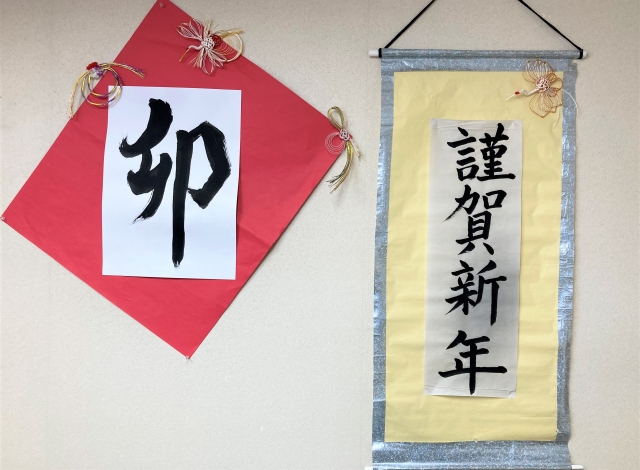 卯
謹賀新年